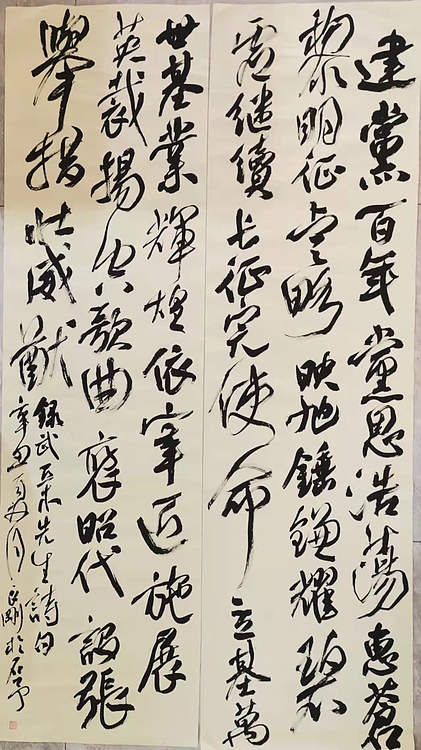 建黨百年黨恩浩蕩惠蒼
黎明征略映旭錘鐮耀碧
虛繼續長征完使命立基萬
世基業輝煌依宰匠施展
英裁揚空歌曲襃昭代設張
舉措壯威猷
錄武木先生詩句
辛丑夏月剛於石